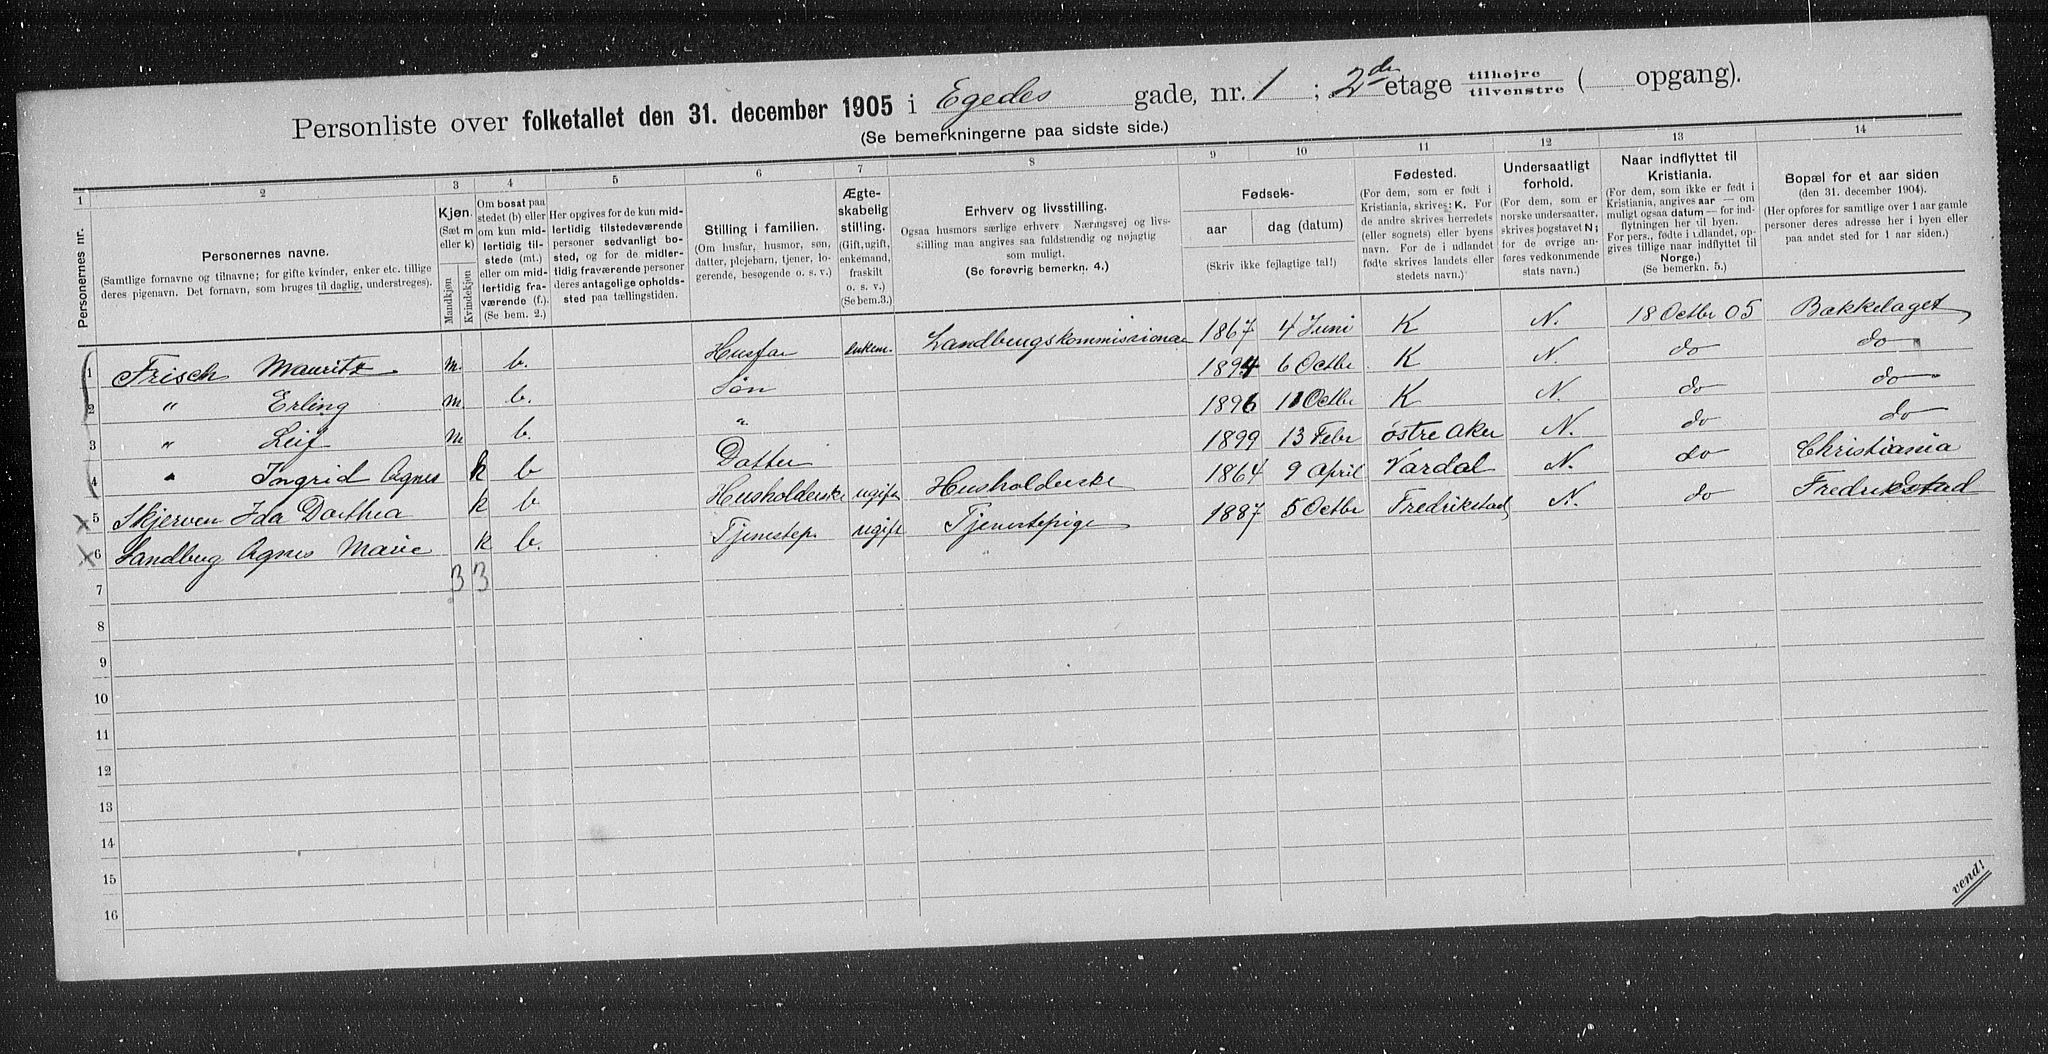 Personliste over folketallet den 31. december 1905 i Egedes gade, nr. 1 ; 2den etage tilhøjre tilvenstre ( opgang).
(Se bemerkningerne paa sidste side.)
1 2 3 4 5 6 7 8 9 10 11 12 13 14
Personernes nr.
Personernes navne.
(Samtlige fornavne og tilnavne; for gifte kvinder, enker etc. tillige
deres pigenavn. Det fornavn, som bruges til daglig, understreges).
Kjøn.
(Sæt m
eller k)
Mandkjøn
Kvindekjøn
Om bosat paa
stedet (b) eller
om kun mid-
lertidig til-
stede (mt.)
eller om mid-
lertidig fra-
værende (f.)
(Se bem. 2.)
Her opgives for de kun mid-
lertidig tilstedeværende
personer sedvanligt bo-
sted, og for de midler-
tidig fraværende personer
deres antagelige opholds-
sted paa tællingstiden.
Stilling i familien.
(Om husfar, husmor, søn,
datter, plejebarn, tjener, lo-
gerende, besøgende o. s. v.)
Ægte-
skabelig
stilling.
(Gift, ugift,
enkemand,
fraskilt
o. s. v.)
(Se bem.3.)
Erhverv og livsstilling.
Ogsaa husmors særlige erhverv. Næringsvej og livs-
stilling maa angives saa fuldstændig og nøjagtig
som muligt.
(Se forøvrig bemerkn. 4.)
Fødsels-
aar dag (datum)
(Skriv ikke fejlagtige tal!)
Fødested.
(For dem, som er født i
Kristiania, skrives: K. For
de andre skrives herredets
(eller sognets) eller byens
navn. For de i udlandet
fødte skrives landets eller
stedets navn.)
Undersaatligt
forhold.
(For dem, som er
norske undersaatter,
skrives bogstavet N;
for de øvrige an-
føres vedkommende
stats navn.)
Naar indflyttet til
Kristiania.
(For dem, som ikke er født i
Kristiania, angives aar — om
muligt ogsaa datum — for ind-
flytningen her til byen.
For pers., fødte i udlandet, op-
gives tillige naar indflyttet til
Norge.)
(Se bemerkn. 5.)
Bopæl for et aar siden
(den 31. december 1904).
(Her opføres for samtlige over 1 aar gamle
personer deres adresse her i byen eller
paa andet sted for 1 aar siden.)
1 Frisch Mauritz m. b. Husfar enkem. Landbrugskommissionær 1867 4 Juni K N. 18 Octbr 05 Bækkelaget
2 " Erling m. b. Søn 1894 6 Octbr K N. do do
3 " Leif m b. " 1896 11 Octbr K N. do do
4 " Ingrid Agnes k b Datter 1899 13 Febr østre Aker N. do do
x 5 Skjerven Ida Dorthea k b Husholderske ugift Husholderske 1864 9 April Vardal N. do Christiania
x 6 Landberg Agnes Marie k b. Tjenestep. ugift Tjenestepige 1887 5 Octbr Fredrikstad N. do Fredrikstad
7 3 3
8
9
10
11
12
13
14
15
16
vend!